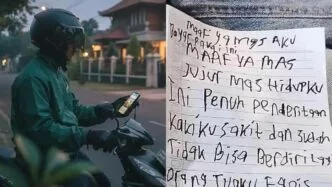 maaf ya mas AKU
bayar Pakai ini
MAAF YA MAS
JUJUr mas HidUPKU
Ini Penuh Penderitaan
KaKiKU saKit dan sudah
TidaK Bisa Berdiri
Orang TuaKU